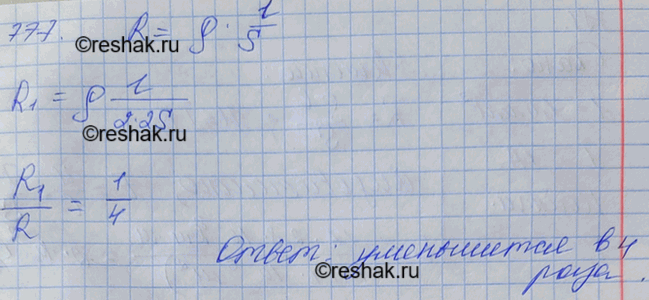 777. R = ρ · l/S
©reshak.ru
R₁ = ρ l/(2·2S)
©reshak.ru
R₁/R = 1/4
Ответ: уменьшится в 4
раза.
©reshak.ru